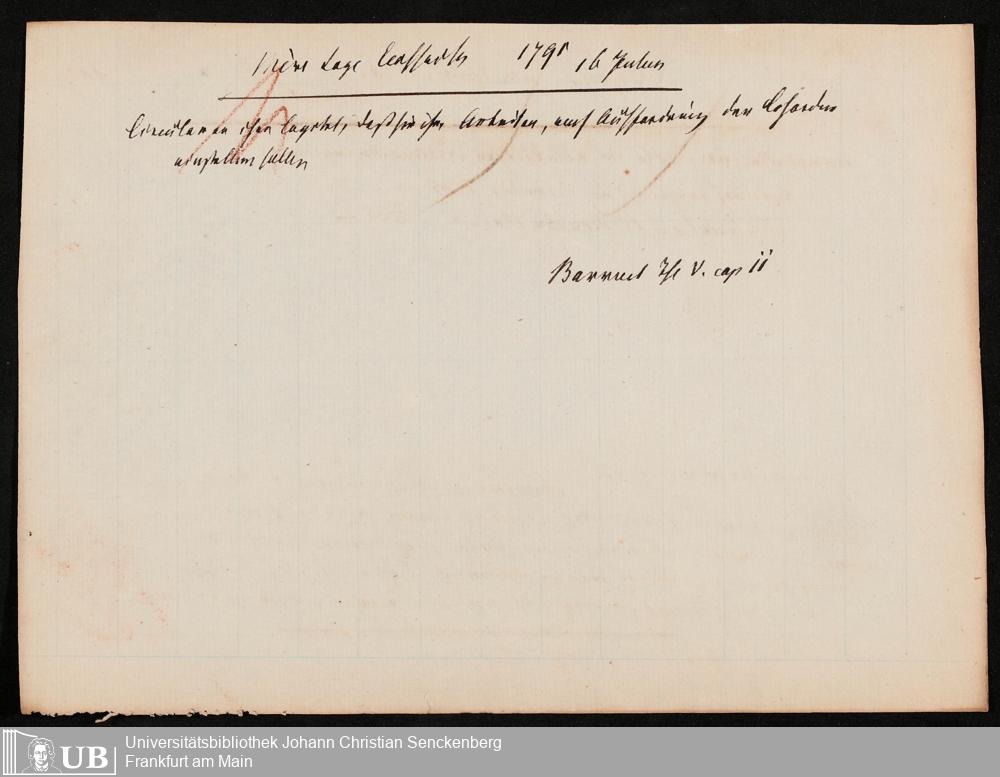 Mère Loge 1791 16 Januar
Circular an ihre Logen, daß sie ihre Arbeiten, auf Aufforderung der Behörden
einstellen sollen
Barruel Thl V. cap 11
UB Universitätsbibliothek Johann Christian Senckenberg
Frankfurt am Main